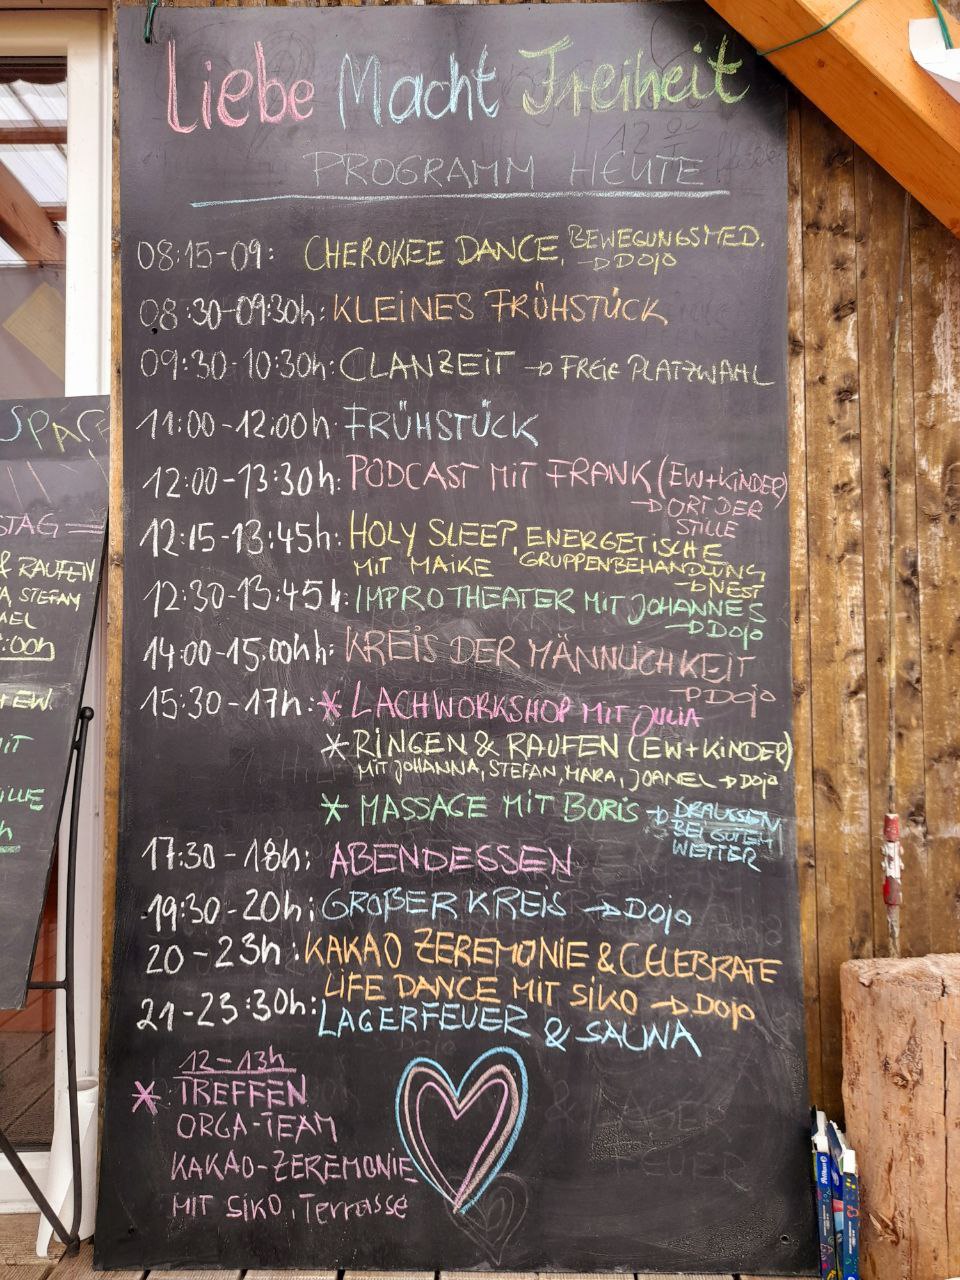 Liebe Macht Freiheit
PROGRAMM HEUTE
08:15-09: CHEROKEE DANCE, BEWEGUNGSMED.
→ DOJO
08:30-09:30h: KLEINES FRÜHSTÜCK
09:30-10:30h: CLANZEIT → FREIE PLATZWAHL
11:00-12.00h: FRÜHSTÜCK
12:00-13:30h: PODCAST MIT FRANK (EW+KINDER)
→ ORT DER
STILLE
12:15-13:45h: HOLY SLEEP, ENERGETISCHE
MIT MAIKE GRUPPENBEHANDLUNG
→ NEST
12:30-13:45h: IMPROTHEATER MIT JOHANNES
→ DOJO
14:00-15.00hh: KREIS DER MÄNNLICHKEIT
→ DOJO
15:30-17h: * LACHWORKSHOP MIT JULIA
* RINGEN & RAUFEN (EW+KINDER)
MIT JOHANNA, STEFAN, MARA, JOANEL → DOJO
* MASSAGE MIT BORIS → DRAUSSEN
BEI GUTEM
WETTER
17:30-18h: ABENDESSEN
19:30-20h: GROßER KREIS → DOJO
20-23h: KAKAO ZEREMONIE & CELEBRATE
LIFE DANCE MIT SIKO → DOJO
21-23:30h: LAGERFEUER & SAUNA
12-13h
* TREFFEN
ORGA-TEAM
KAKAO-ZEREMONIE
MIT SIKO, Terrasse
SPACE
STAG
& RAUFEN
STEFAN
:00h